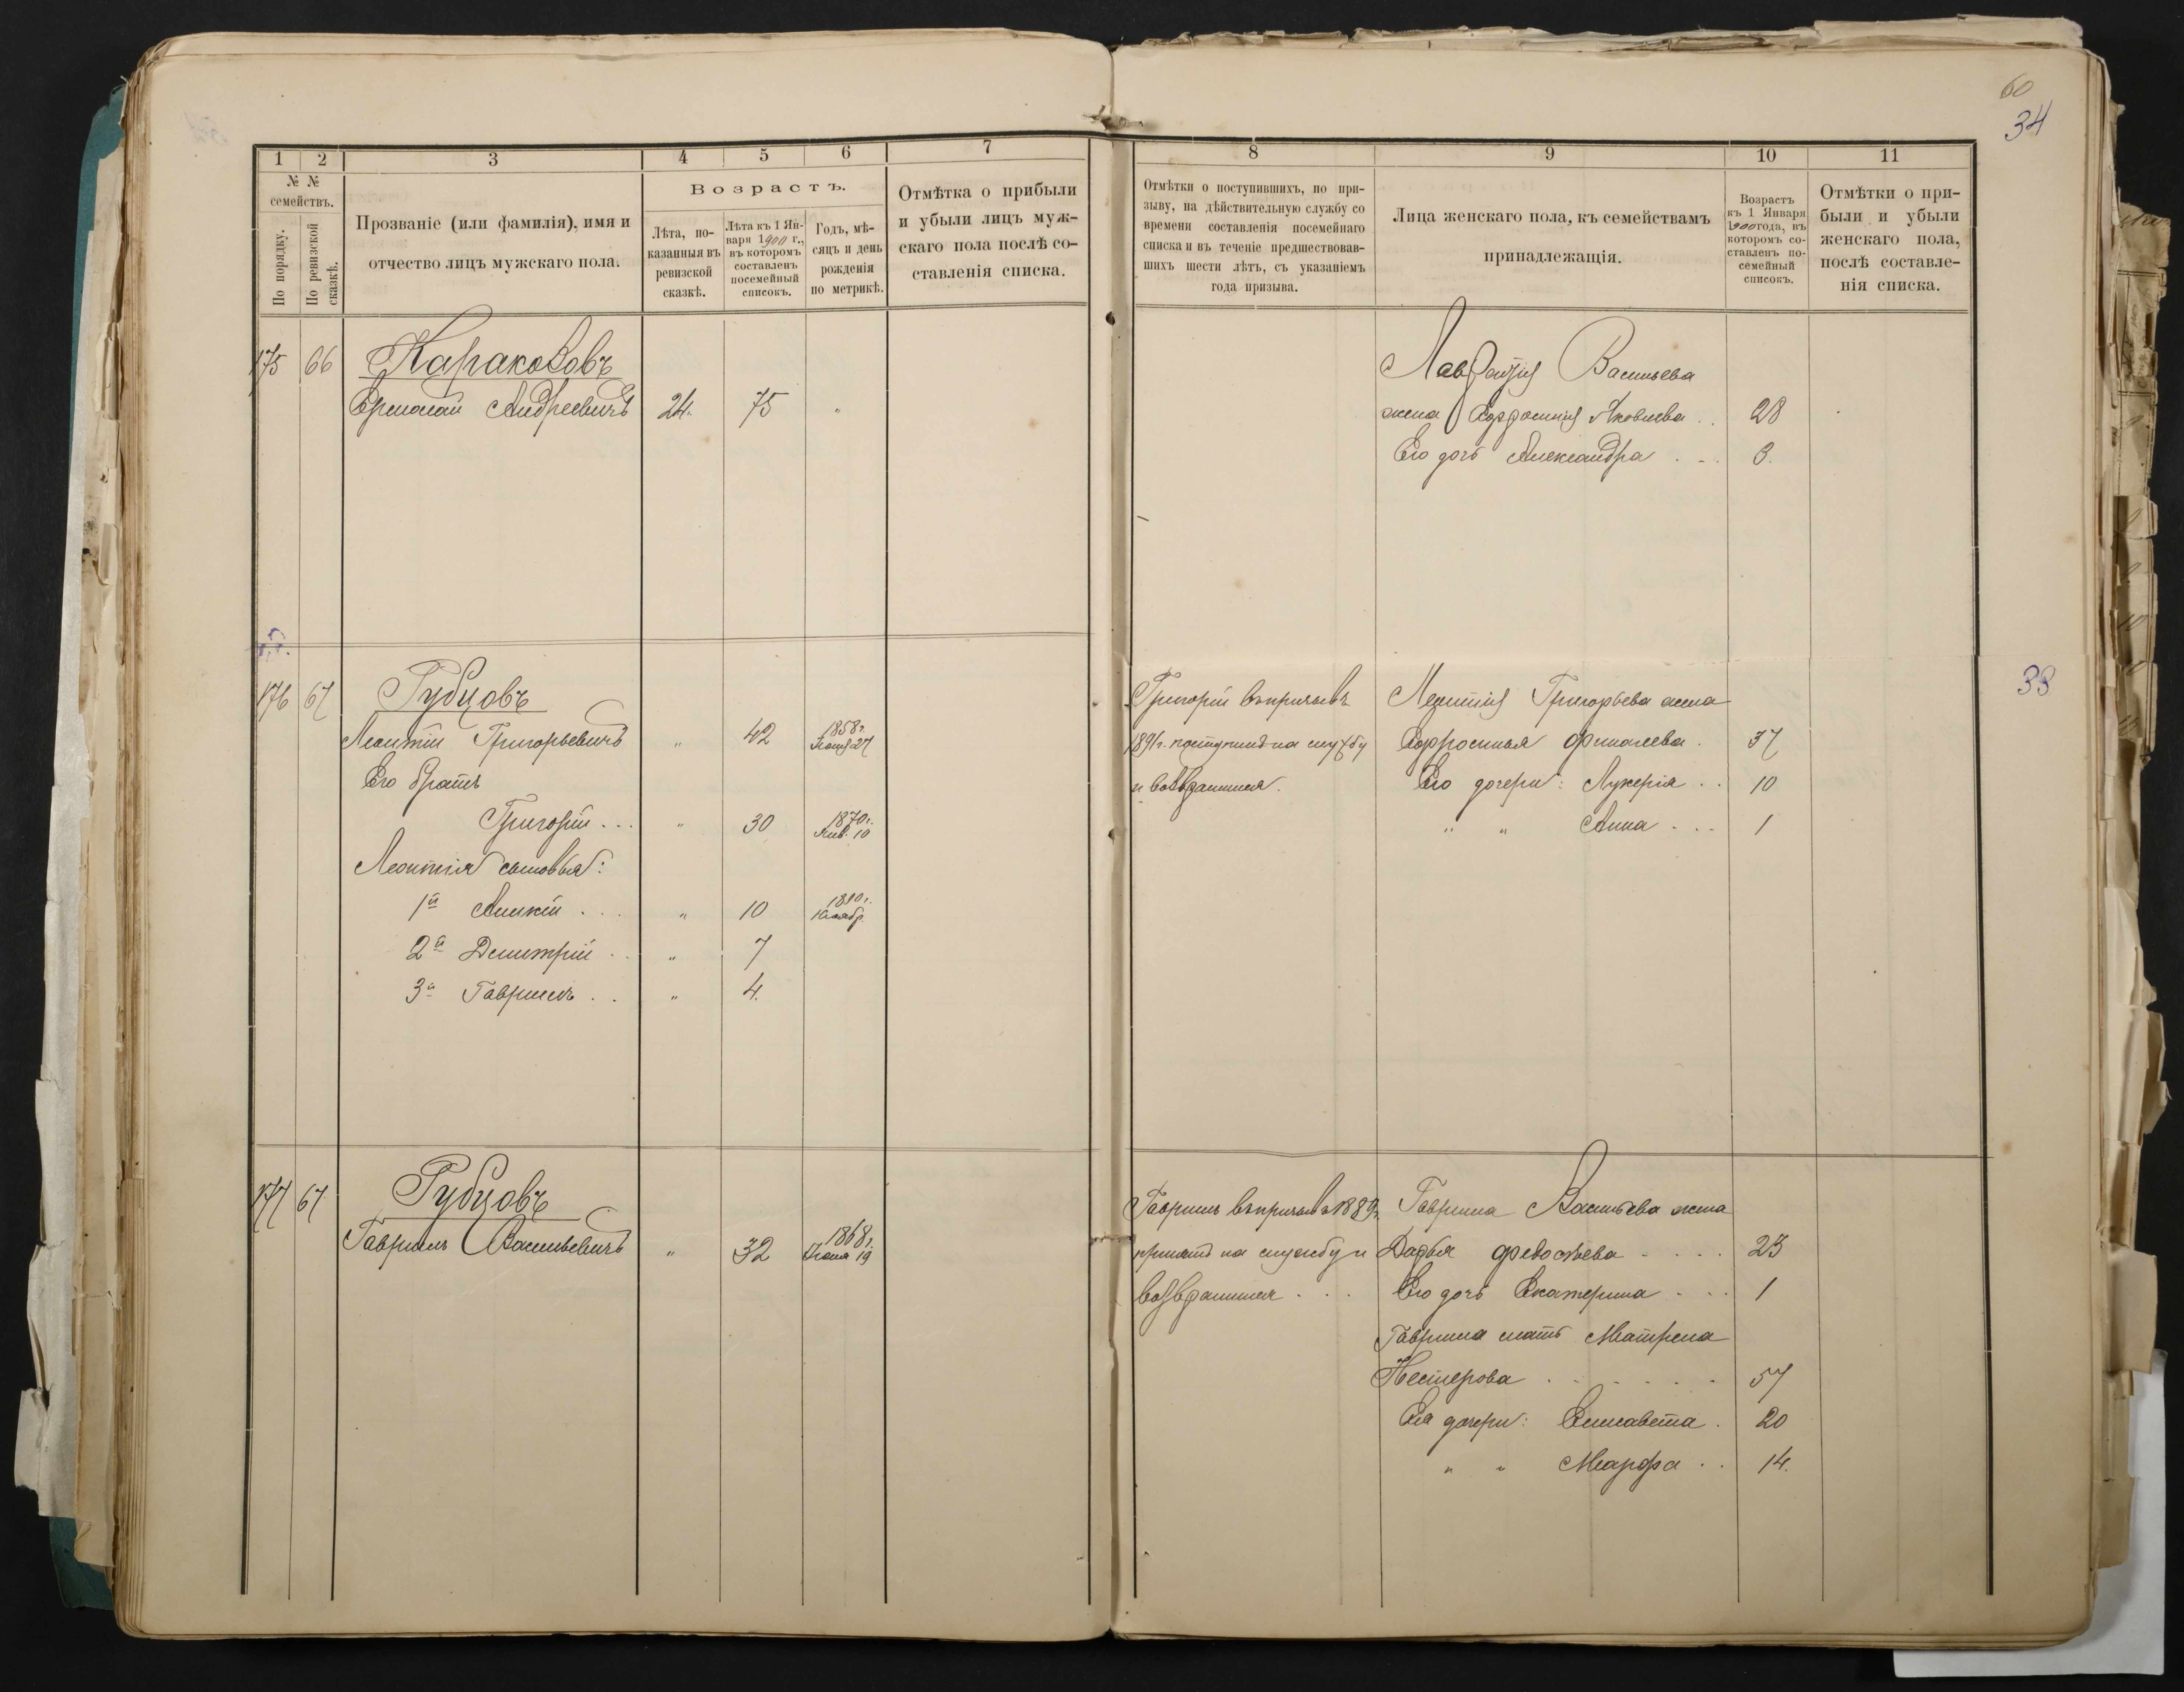 60
34
1 2 3 4 5 6 7
№ № семействъ.
По порядку.
По ревизской сказкѣ.
Прозваніе (или фамилія), имя и
отчество лицъ мужскаго пола.
Возрастъ.
Лѣта, по-
казанныя въ
ревизской
сказкѣ.
Лѣта къ 1 Ян-
варя 1900 г.,
въ которомъ
составленъ
посемейный
списокъ.
Годъ, мѣ-
сяцъ и день
рожденія
по метрикѣ.
Отмѣтка о прибыли
и убыли лицъ муж-
скаго пола послѣ со-
ставленія списка.
175 66
Ермолай Андреевичъ 24. 75 "
176 67 Рубцовъ
Леонтій Григорьевичъ " 42 1858 г. 27
Его братъ
Григорій . . . " 30 1870 г. Янв. 10
Леонтія сыновья:
1й . . . " 10 1890 г.
2й Дмитрій . . " 7
3й Гавріилъ . . " 4.
177 67 Рубцовъ
Гавріилъ Васильевичъ " 32 1868 г. 19
8 9 10 11
Отмѣтки о поступившихъ, по при-
зыву, на дѣйствительную службу со
времени составленія посемейнаго
списка и въ теченіе предшествовав-
шихъ шести лѣтъ, съ указаніемъ
года призыва.
Лица женскаго пола, къ семействамъ
принадлежащія.
Возрастъ
къ 1 Января
1900 года, въ
которомъ со-
ставленъ по-
семейный
списокъ.
Отмѣтки о при-
были и убыли
женскаго пола,
послѣ составле-
нія списка.
Васильева
жена Яковлева . . 28
Его дочь Александра . . . 3.
38
Григорій въ призывъ
1891 г. поступилъ на службу
и возвратился.
Леонтія Григорьева жена
Ермолаева . 37
Его дочери: Лукерія . . 10
" " Анна . . . 1
Гавріилъ въ призывъ 1889 г.
принятъ на службу и
возвратился . . .
Гавріила Васильева жена
Дарья Ѳедосѣева . . . . 23
Его дочь Екатерина . . . 1
Гавріила мать Матрена
Нестерова . . . . . . 57
Ея дочери: Елисавета . 20
" " Марфа . . 14.